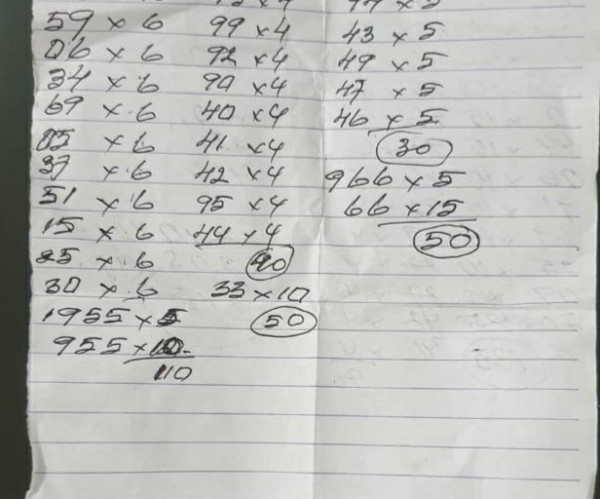 59 x 6
06 x 6
34 x 6
69 x 6
85 x 6
37 x 6
51 x 6
15 x 6
25 x 6
30 x 6
1955 x 5
955 x 10
110
99 x 4
92 x 4
90 x 4
40 x 4
41 x 4
42 x 4
95 x 4
44 x 4
40
33 x 10
50
43 x 5
49 x 5
47 x 5
46 x 5
30
966 x 5
66 x 15
50